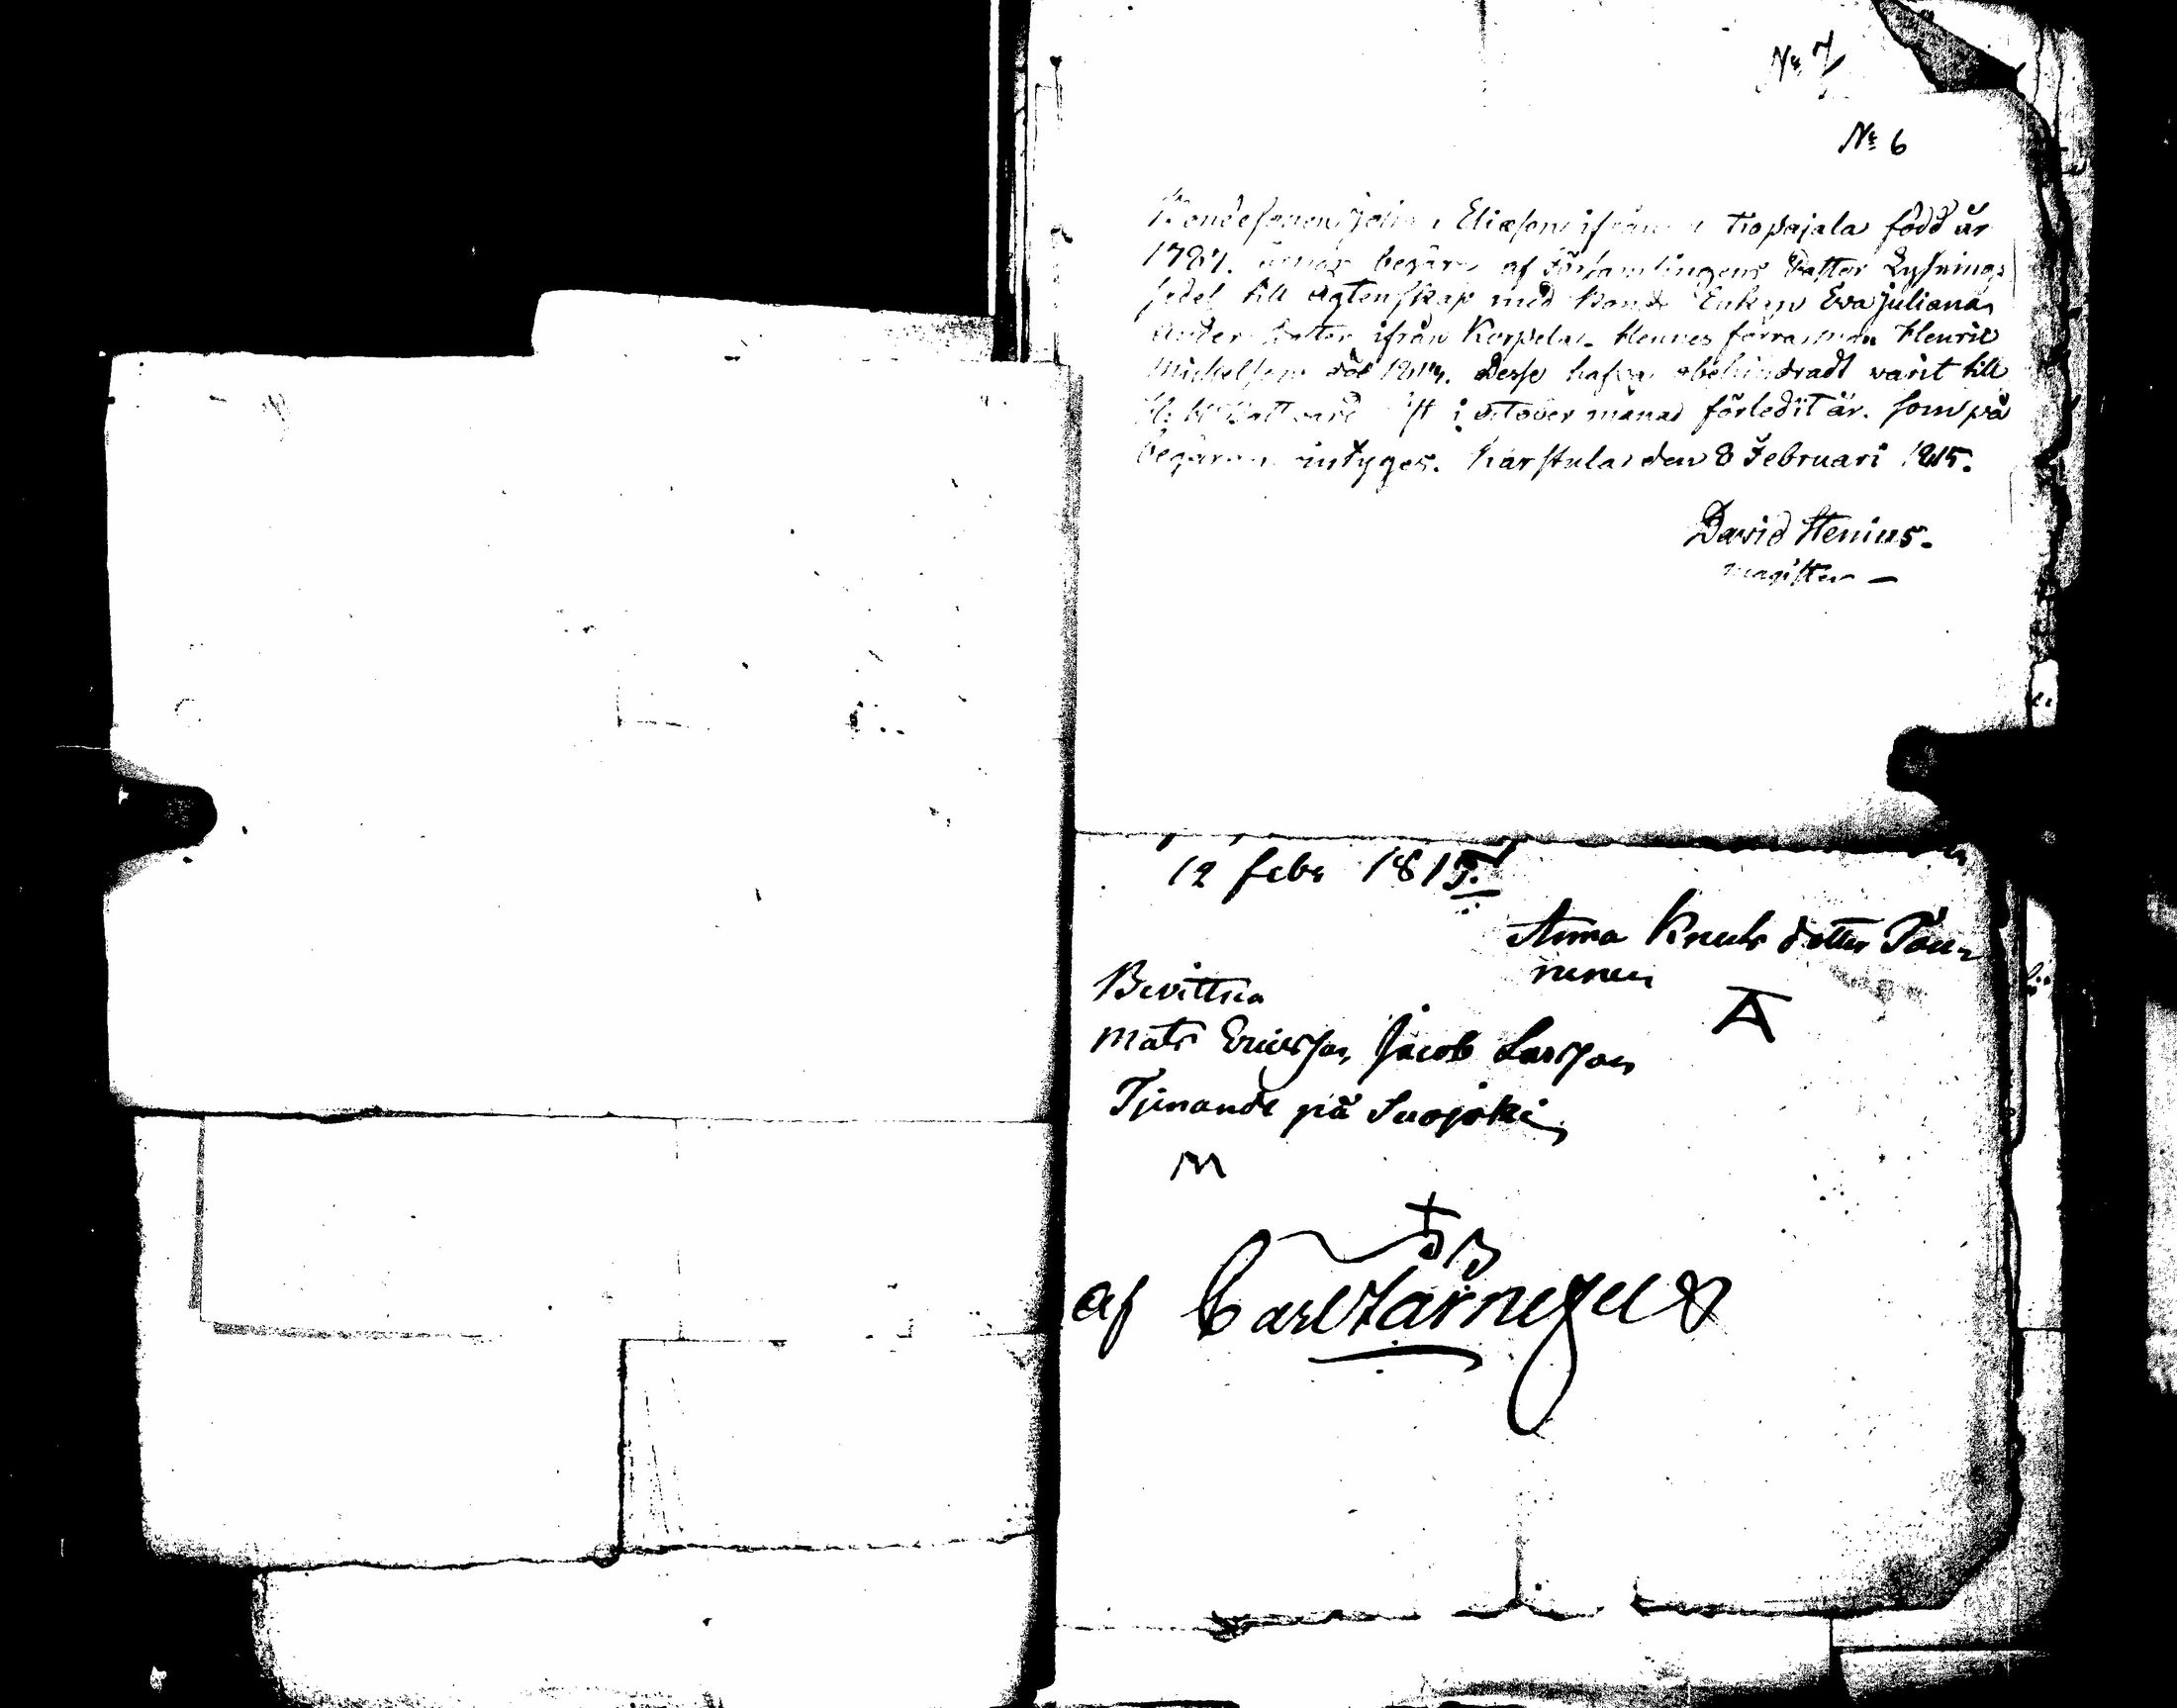 No 7
No 6
Bondesonen Elieson ifrån Tiopajala född år
1787. begära af Församlingens Pastor Lysnings
sedel till ägtenskap med bonde Enkan Eva Juliana
Anders dotter ifrån Korpela. Hennes förra man Henric
Michelson död 1814. Desse hafva obehindradt warit till
H. H. Nattvard i october månad förledit år. som på
begäran intyges. Karstula den 8 Februari 1815.
David Stenius.
magister
12 febr 1815.
Anna Knuts dotter Pau-
nunen
A
Bevittna
Mats Ericsson, Jacob Larsson
Tjenande på Suojoki
M
af Carl